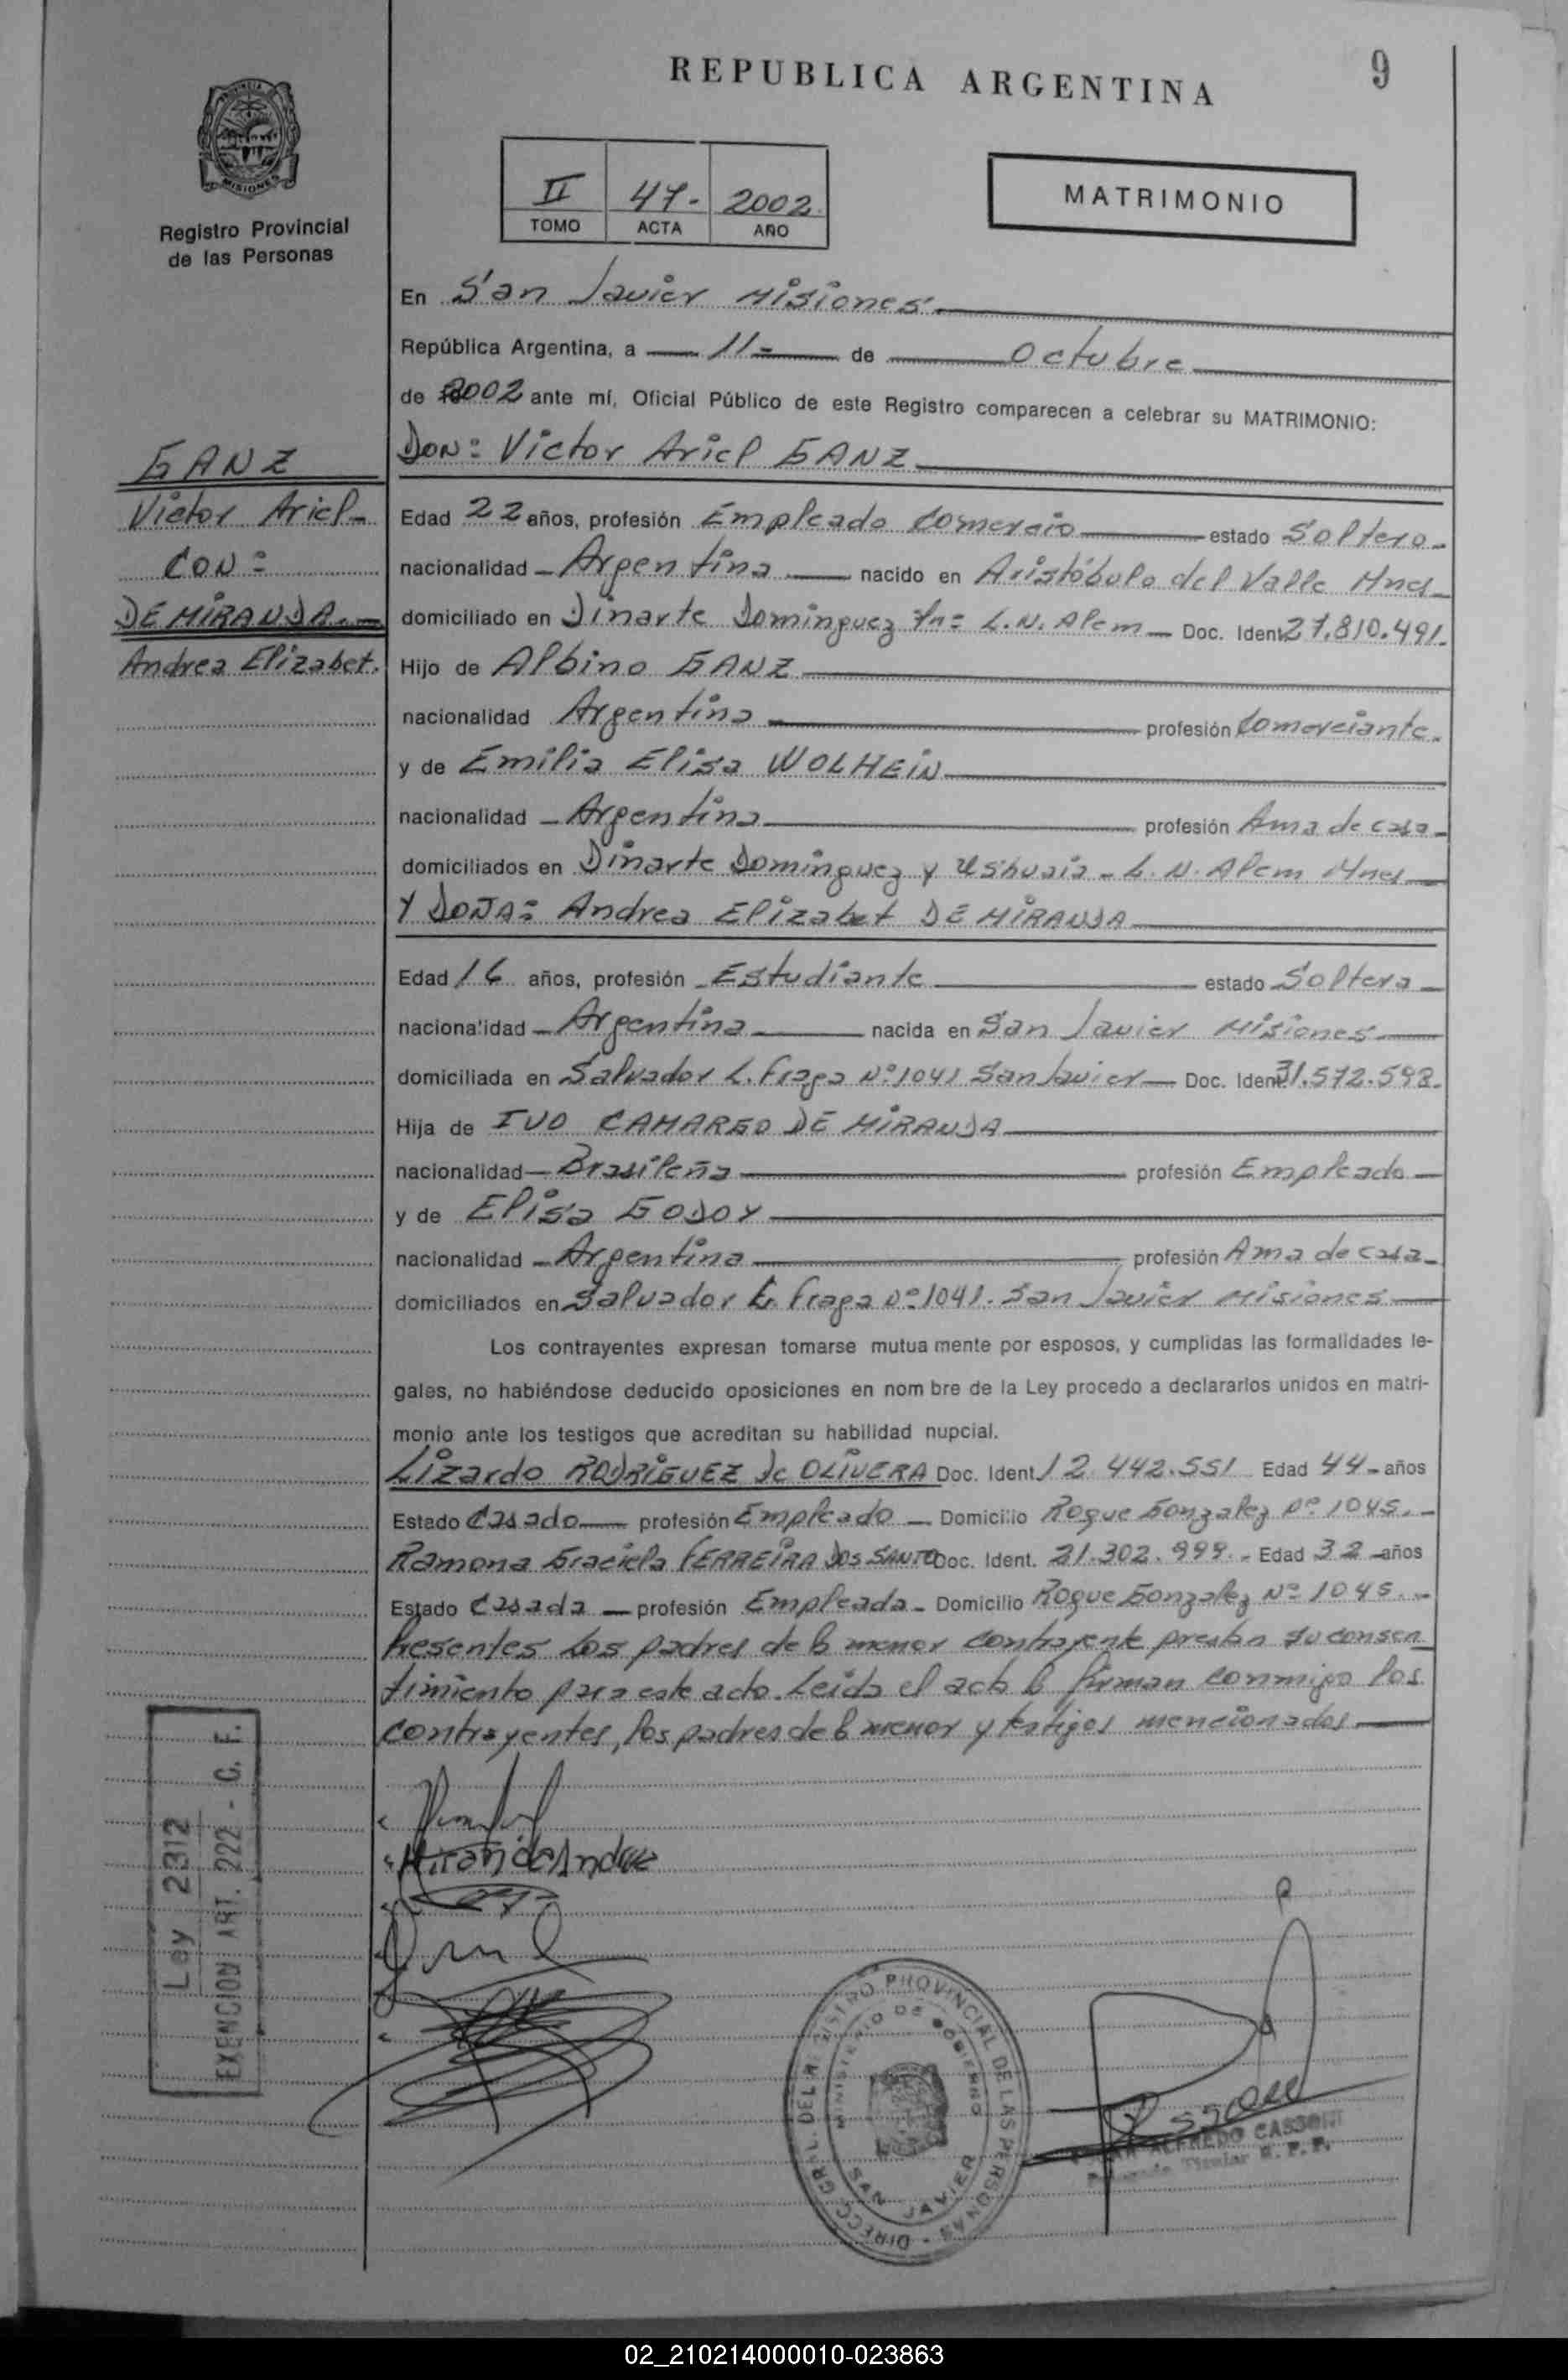 REPUBLICA ARGENTINA
9
MISIONES
Registro Provincial
de las Personas
II 47- 2002
TOMO ACTA AÑO
MATRIMONIO
En San Javier Misiones
República Argentina, a 11- de Octubre
de 2002 ante mí, Oficial Público de este Registro comparecen a celebrar su MATRIMONIO:
GANZ
Victor Ariel-
CON:
DE MIRANDA.-
Andrea Elizabet.
DON: Victor Ariel GANZ
Edad 22 años, profesión Empleado Comercio estado Soltero-
nacionalidad Argentina nacido en Aristóbulo del Valle Mnes
domiciliado en Dinarte Dominguez L.N. Alem Doc. Ident 27.810.491.
Hijo de Albino GANZ
nacionalidad Argentina profesión Comerciante.
y de Emilia Elisa WOLHEIN
nacionalidad Argentina profesión Ama de casa
domiciliados en Dinarte Dominguez y Ushuaia - L.N. Alem Mnes
Y DOÑA: Andrea Elizabet DE MIRANDA
Edad 16 años, profesión Estudiante estado Soltera
nacionalidad Argentina nacida en San Javier Misiones
domiciliada en Salvador L. Fraga Nº 1041 San Javier Doc. Ident 31.572.598.
Hija de IVO CAMARGO DE MIRANDA
nacionalidad Brasileña profesión Empleado
y de Elisa GODOY
nacionalidad Argentina profesión Ama de casa
domiciliados en Salvador L. Fraga Nº 1041. San Javier Misiones
Los contrayentes expresan tomarse mutua mente por esposos, y cumplidas las formalidades le-
gales, no habiéndose deducido oposiciones en nom bre de la Ley procedo a declararlos unidos en matri-
monio ante los testigos que acreditan su habilidad nupcial.
Lizardo RODRIGUEZ de OLIVERA Doc. Ident. 12.442.551 Edad 44- años
Estado Casado profesión Empleado Domicilio Roque Gonzalez Nº 1045.-
Ramona Graciela FERREIRA DOS SANTO Doc. Ident. 21.302.999.- Edad 32 años
Estado Casada profesión Empleada Domicilio Roque Gonzalez Nº 1045.-
Presentes los padres de la menor contrayente prestan su consen
timiento para este acto. Leida el acta la firman conmigo los
contrayentes, los padres de la menor y testigos mencionados
Ley 2312
EXENCION ART. 222 - C. F.
Miranda Andrea
DIRECC. GRAL. DEL REGISTRO PROVINCIAL DE LAS PERSONAS -
MINISTERIO DE GOBIERNO
SAN JAVIER
ALFREDO CASSONI
Titular R. P. P.
02_210214000010-023863